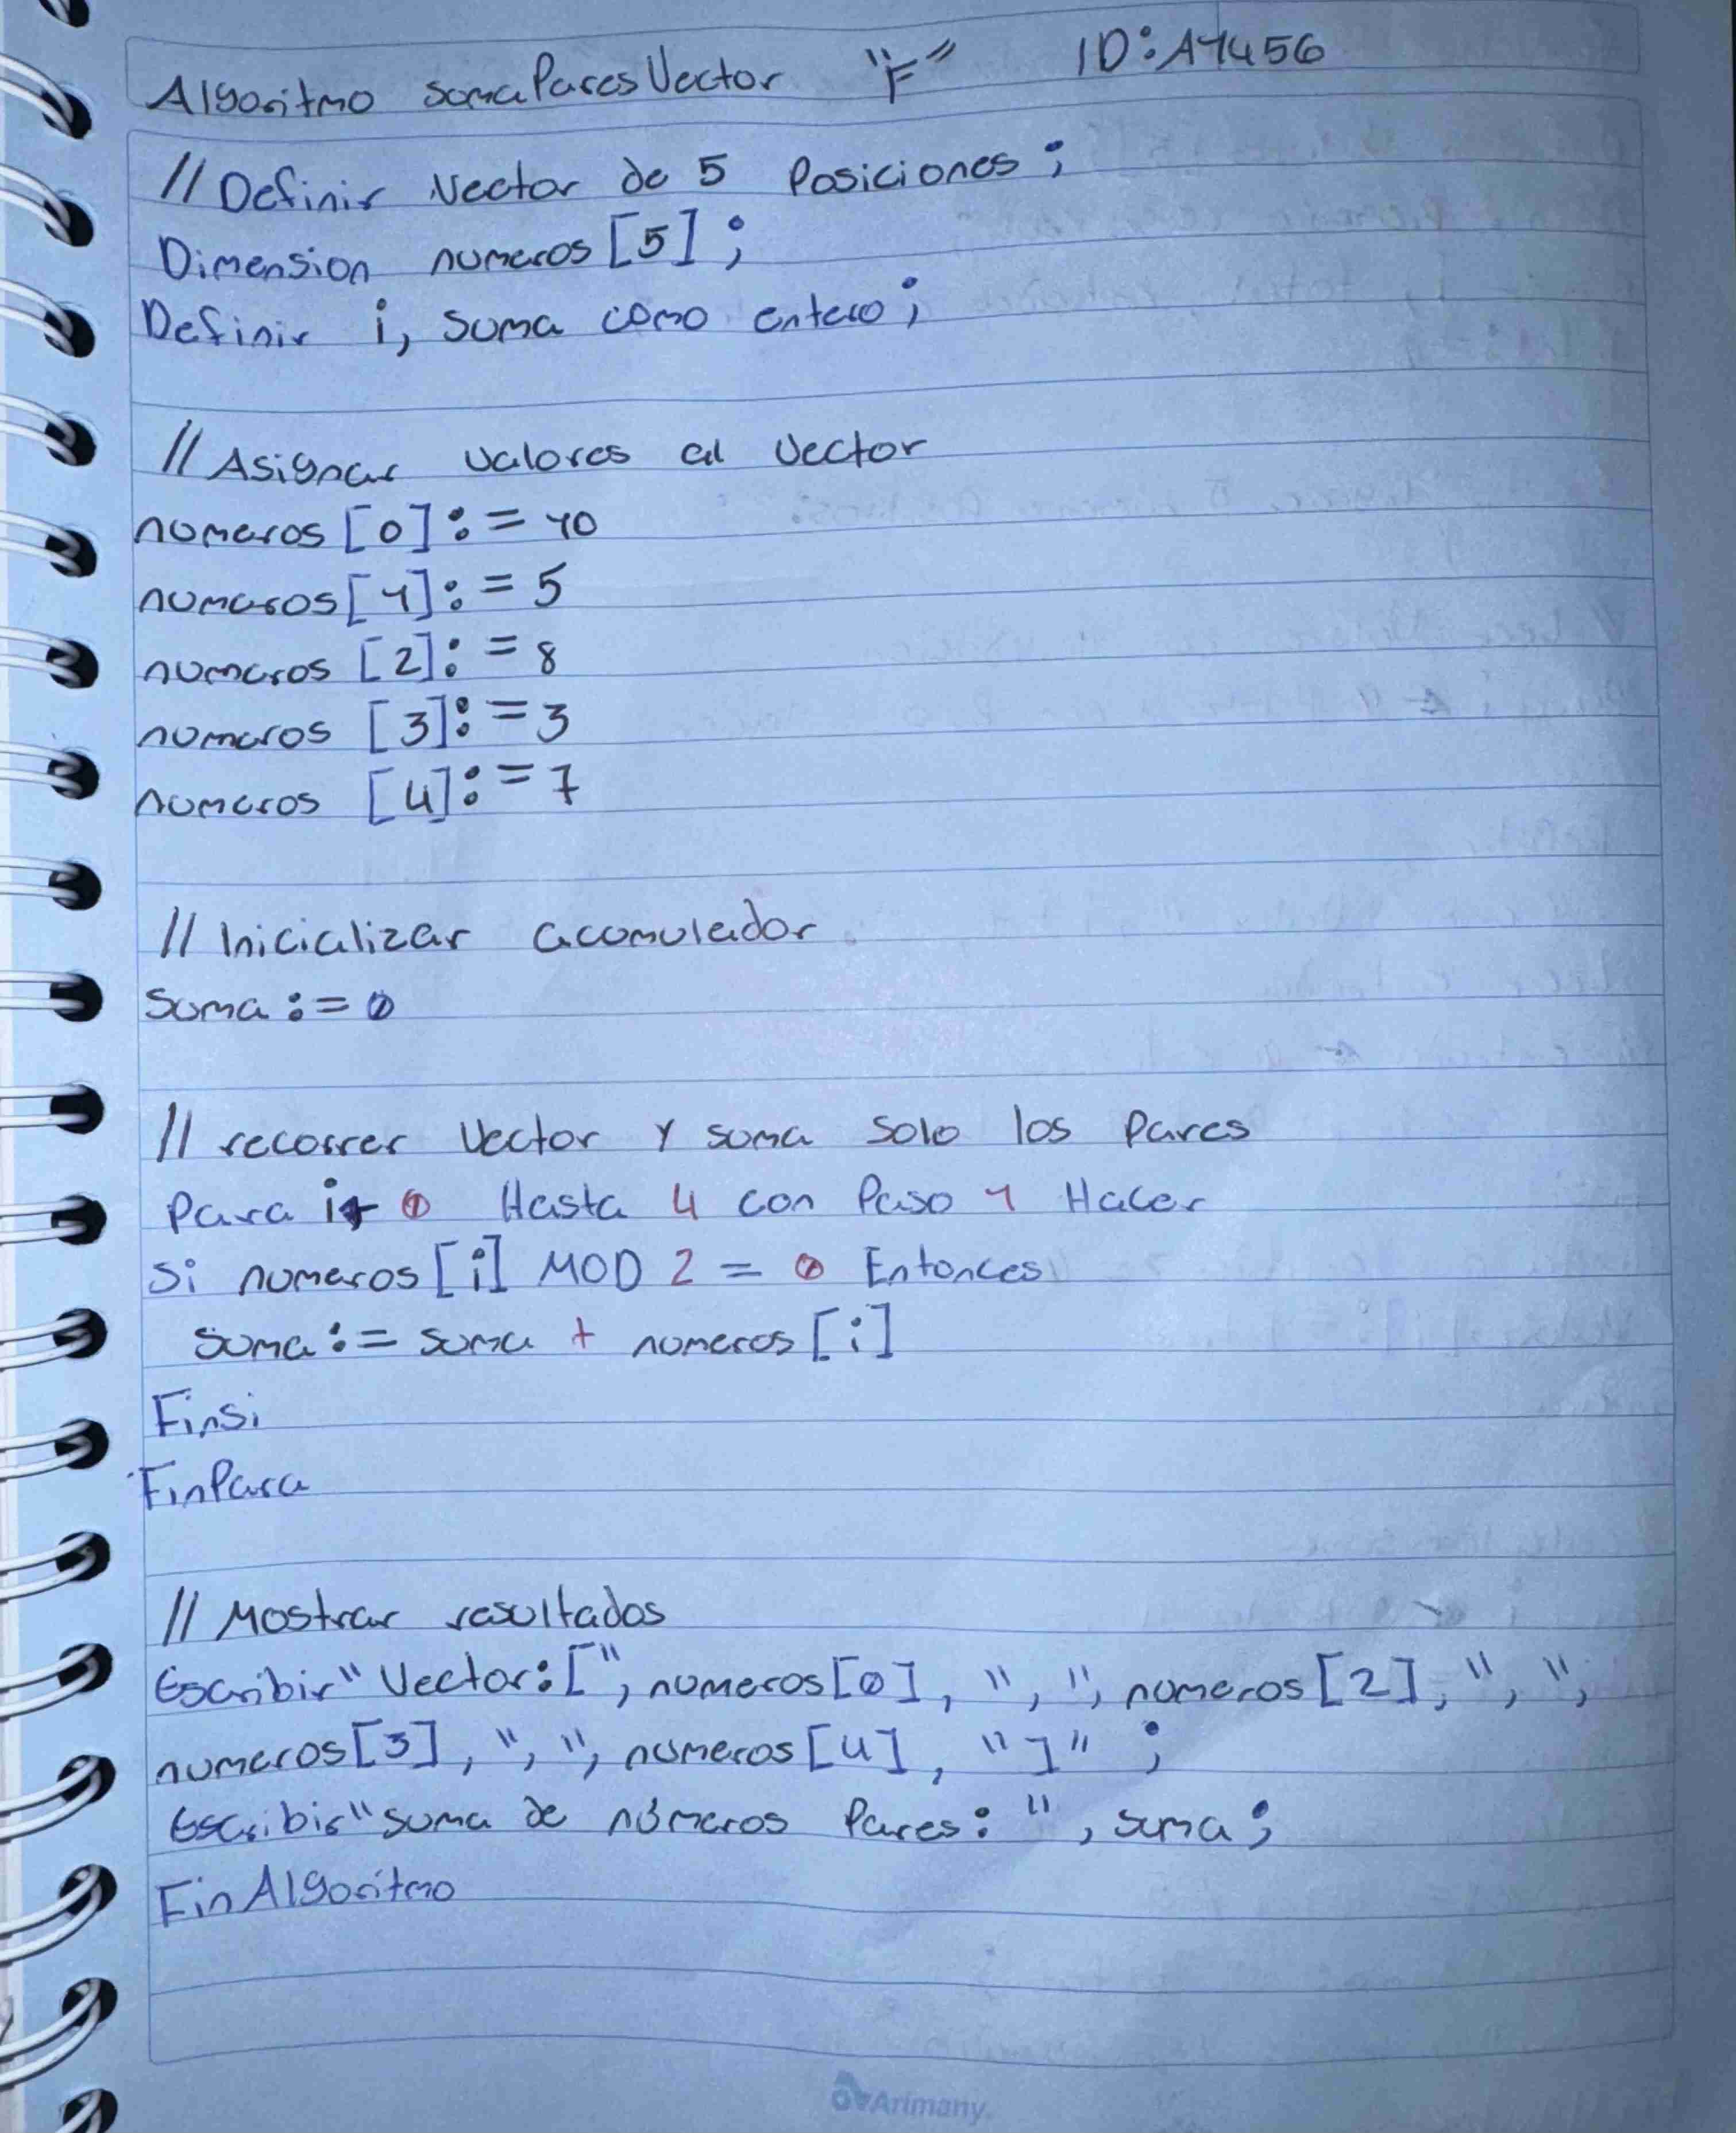 Algoritmo sumaParesVector "F" ID:A1456
//Definir Vector de 5 Posiciones;
Dimension numeros [5];
Definir i, suma como entero;
//Asignar valores al vector
numeros [0]:=10
numeros[1]:=5
numeros [2]:=8
numeros [3]:=3
numeros [4]:=7
//Inicializar acumulador
Suma:=0
//recorrer Vector y suma solo los Pares
Para i← 0 Hasta 4 con Paso 1 Hacer
Si numeros[i] MOD 2 = 0 Entonces
suma:= suma + numeros [i]
Finsi
FinPara
//Mostrar resultados
Escribir"Vector:[", numeros[0], ",", numeros[2], ",",
numeros[3], ",", numeros[4], "]";
Escribir"suma de números Pares:", suma;
FinAlgoritmo
Arimany